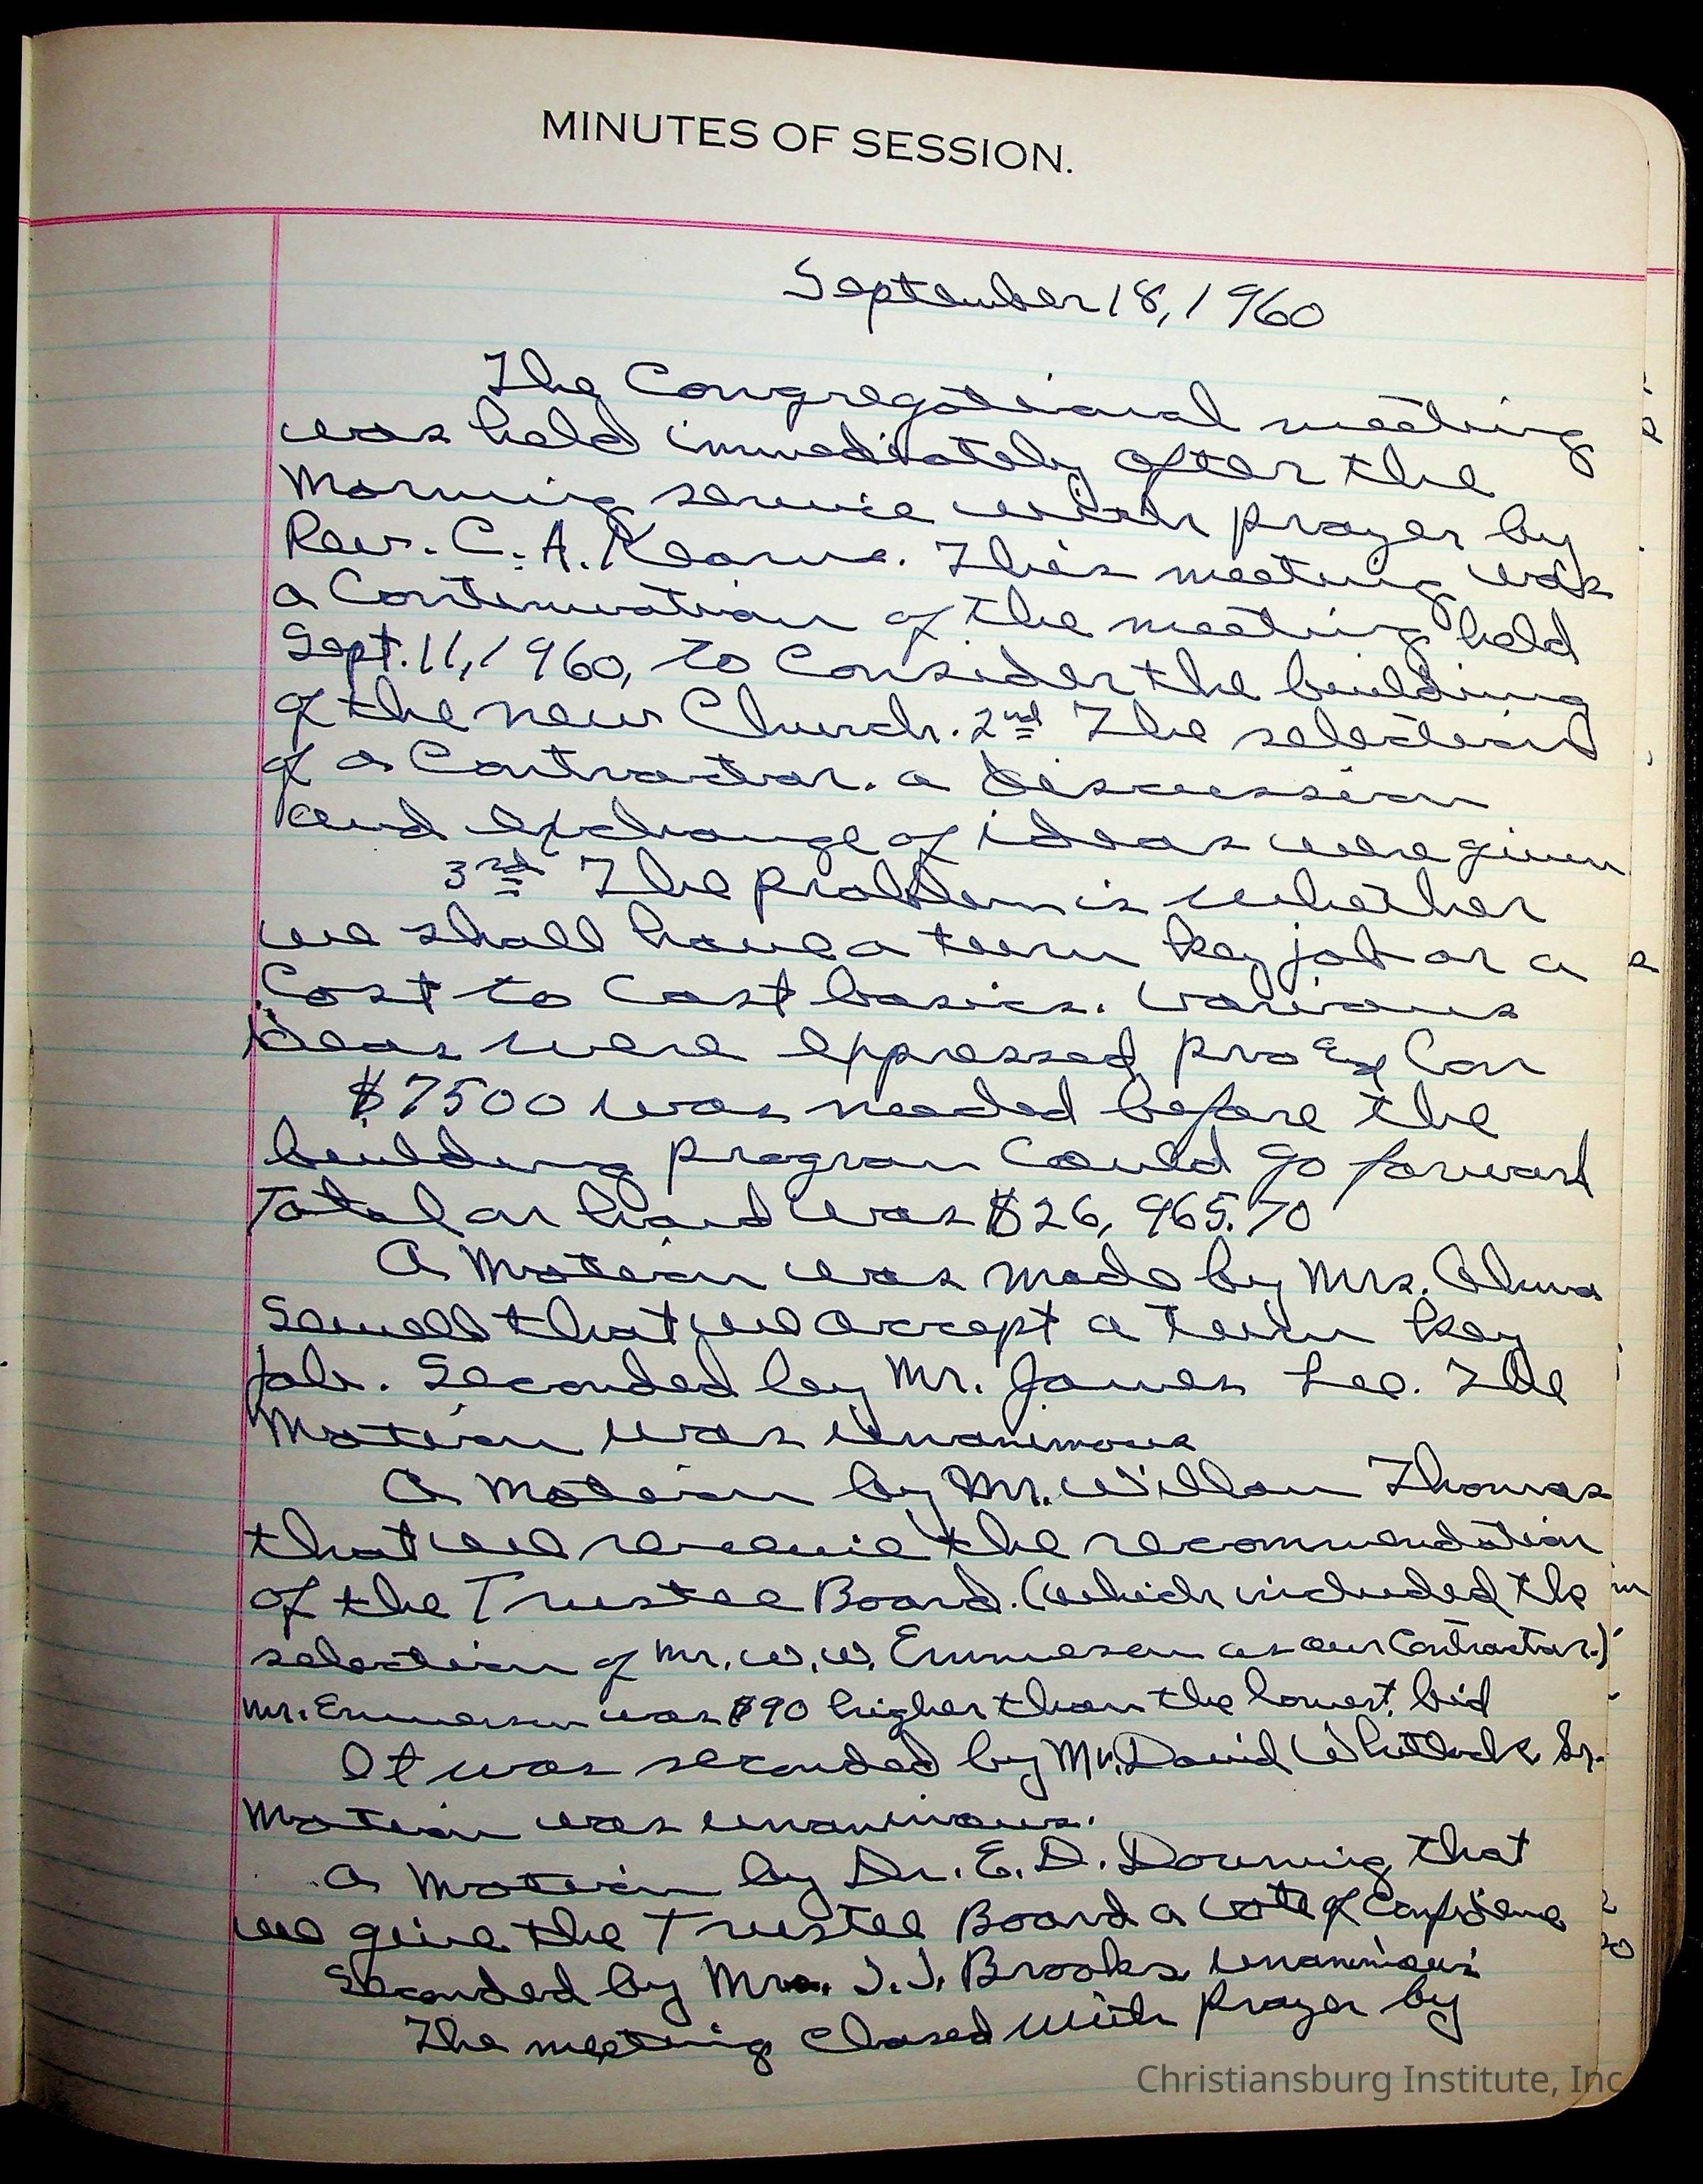 MINUTES OF SESSION.
September 18, 1960
The Congregational meeting
was held immediately after the
Morning service with prayer by
Rev. C. A. Kearns. This meeting was
a Continuation of the meeting held
Sept. 11, 1960, to Consider the building
of the new Church. 2nd The selection
of a Contractor. a discussion
and exchange of ideas were given
3rd The problem is whether
we shall have a turn key job or a
Cost to Cost basics. various
ideas were expressed pro & Con
$7500 was needed before the
building program Could go forward
Total on hand was $26, 965.70
A Motion was made by Mrs. Alma
Sewell that we accept a turn key
job. Seconded by Mr. James Lee. The
Motion was unanimous
A Motion by Mr. Thomas
that we receive the recommendation
of the Trustee Board. (which included the
selection of Mr. W. W. Emmerson as our Contractor.)
Mr. Emmerson was $90 higher than the lowest bid
It was seconded by Mr. David Whitlock Sr.
Motion was unanimous.
a Motion by Dr. E. D. Downing that
we give the Trustee Board a vote of Confidence
Seconded by J. J. Brooks. unanimous
The meeting Closed with Prayer by
Christiansburg Institute, Inc